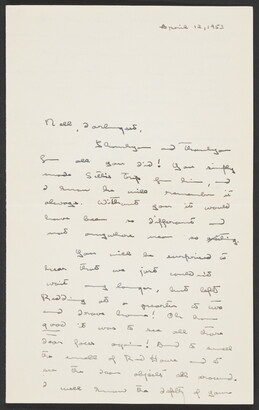 April 12, 1953
Nell, darlingest,
Thankyou and thankyou
for all you did! You simply
made Silli's trip for him, and
I know he will remember it
always. Without you it would
have been so different and
not anywhere near so
You will be surprised to
hear that we just couldn't
wait any longer, but left
Redding at a quarter to two
and drove home! Oh how
good it was to see all those
dear faces again! And to smell
the smell of Red House and to
see the dear objects all around.
I well know the depth of your